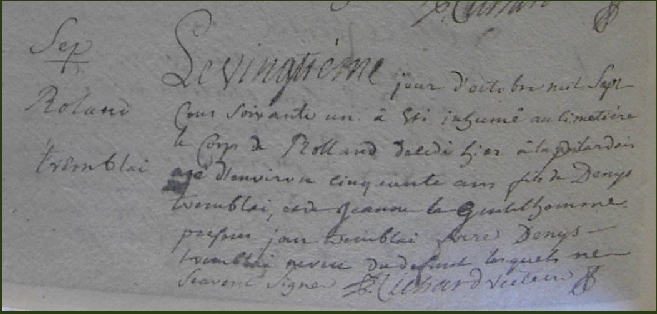 Sep
Roland
tremblai
Le vingtiéme jour d'octobre mil Sept
Cens Soixante un a été inhumé au Cimetiére
le Corps de Rolland décédé hier à la
agé d'environ Cinquante ans fils de Denys
tremblai, et de Jeanne le Gentilhomme
presens jean tremblai frere Denys
tremblai neveu du defunt lesquels ne
Scavent Signer Vicaire